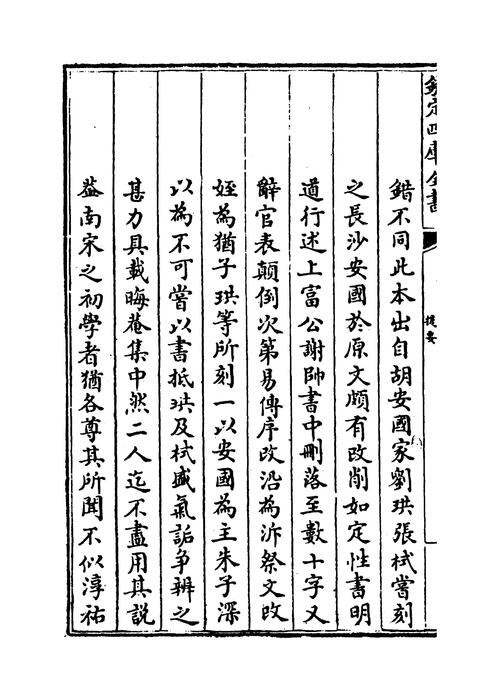 欽定四庫全書
提要
錯不同此本出自胡安國家劉珙張栻嘗刻
之長沙安國於原文頗有改削如定性書明
道行述上富公謝帥書中刪落至數十字又
辭官表顛倒次第易傳序改沿為泝祭文改
姪為猶子珙等所刻一以安國為主朱子深
以為不可嘗以書抵珙及栻盛氣詬爭辨之
甚力具載晦菴集中然二人迄不盡用其説
葢南宋之初學者猶各尊其所聞不似淳祐